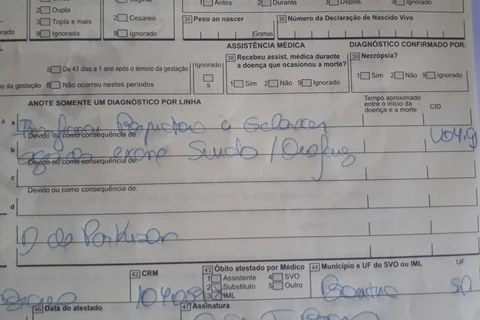 2 Dupla
3 Tripla e mais
9 Ignorada
2 Cesáreo
9 Ignorado
1 Antes 2 Durante 3 Depois 9 Ignorado
35 Peso ao nascer
Gramas
36 Número da Declaração de Nascido Vivo
ASSISTÊNCIA MÉDICA
DIAGNÓSTICO CONFIRMADO POR:
5 De 43 dias a 1 ano após o término da gestação
Ignorado
9
o da gestação 8 Não ocorreu nestes períodos
38 Recebeu assist. médica durante
a doença que ocasionou a morte?
1 Sim 2 Não 9 Ignorado
39 Necrópsia?
1 Sim 2 Não 9 Ignorado
ANOTE SOMENTE UM DIAGNÓSTICO POR LINHA
Tempo aproximado
entre o início da
doença e a morte
CID
a
Devido ou como consequência de:
U04.9
b
Devido ou como consequência de:
c
Devido ou como consequência de:
d
D de Parkinson
42 CRM
43 Óbito atestado por Médico
1 Assistente 4 SVO
2 Substituto 5 Outro
3 IML
44 Município e UF do SVO ou IML
UF
46 Data do atestado
47 Assinatura